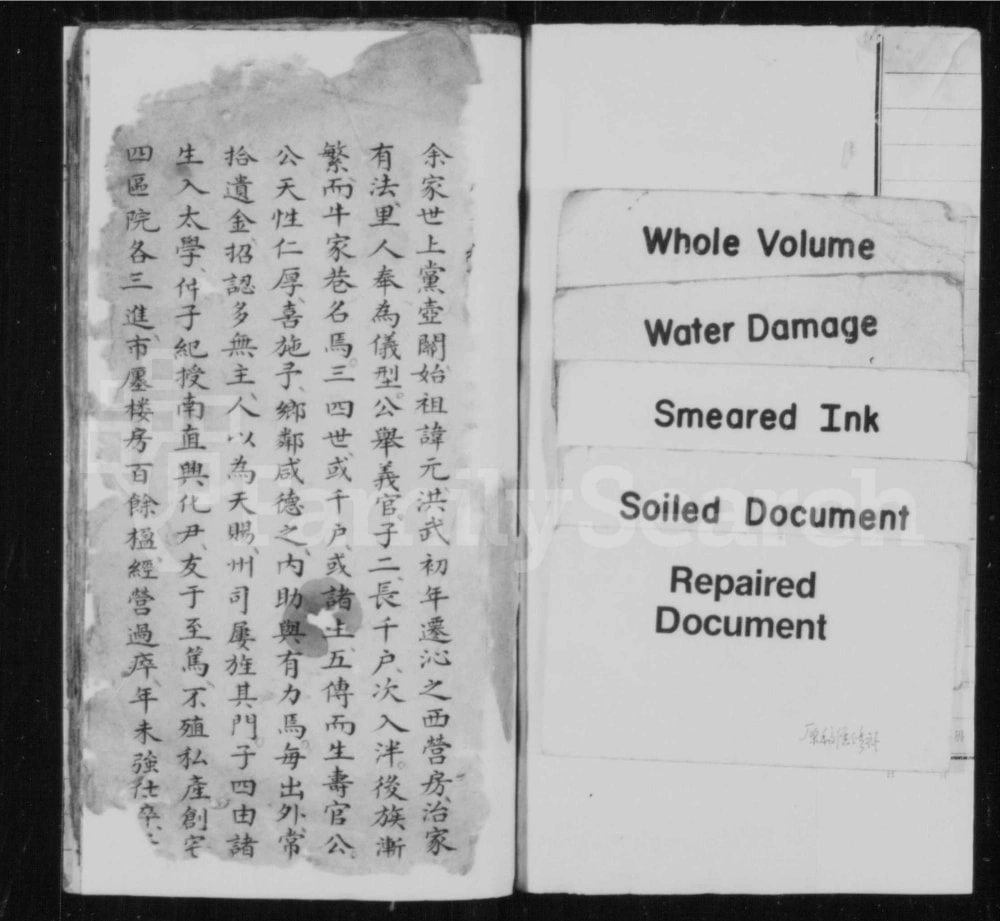 余家世上黨壺關始祖諱元洪武初年遷沁之西營房、治家
有法、里人奉為儀型。公舉義官子二、長千戶、次入泮。後族漸
繁、而牛家巷名焉。三四世或千戶、或諸生、五傳而生壽官公。
公天性仁厚、喜施予、鄉鄰咸德之、內助與有力焉。每出外、常
拾遺金、招認多無主、人以為天賜、州司屢旌其門。子四由諸
生入太學、仲子紀授南直興化尹、友于至篤、不殖私產、創宅
四區院各三進、市廛楼房百餘楹、經營過瘁、年未強仕卒、
Whole Volume
Water Damage
Smeared Ink
Soiled Document
Repaired
Document
FamilySearch